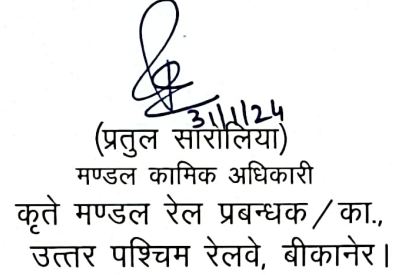 31/1/24
(प्रतुल सारोलिया)
मण्डल कामिक अधिकारी
कृते मण्डल रेल प्रबन्धक / का.,
उत्तर पश्चिम रेलवे, बीकानेर।